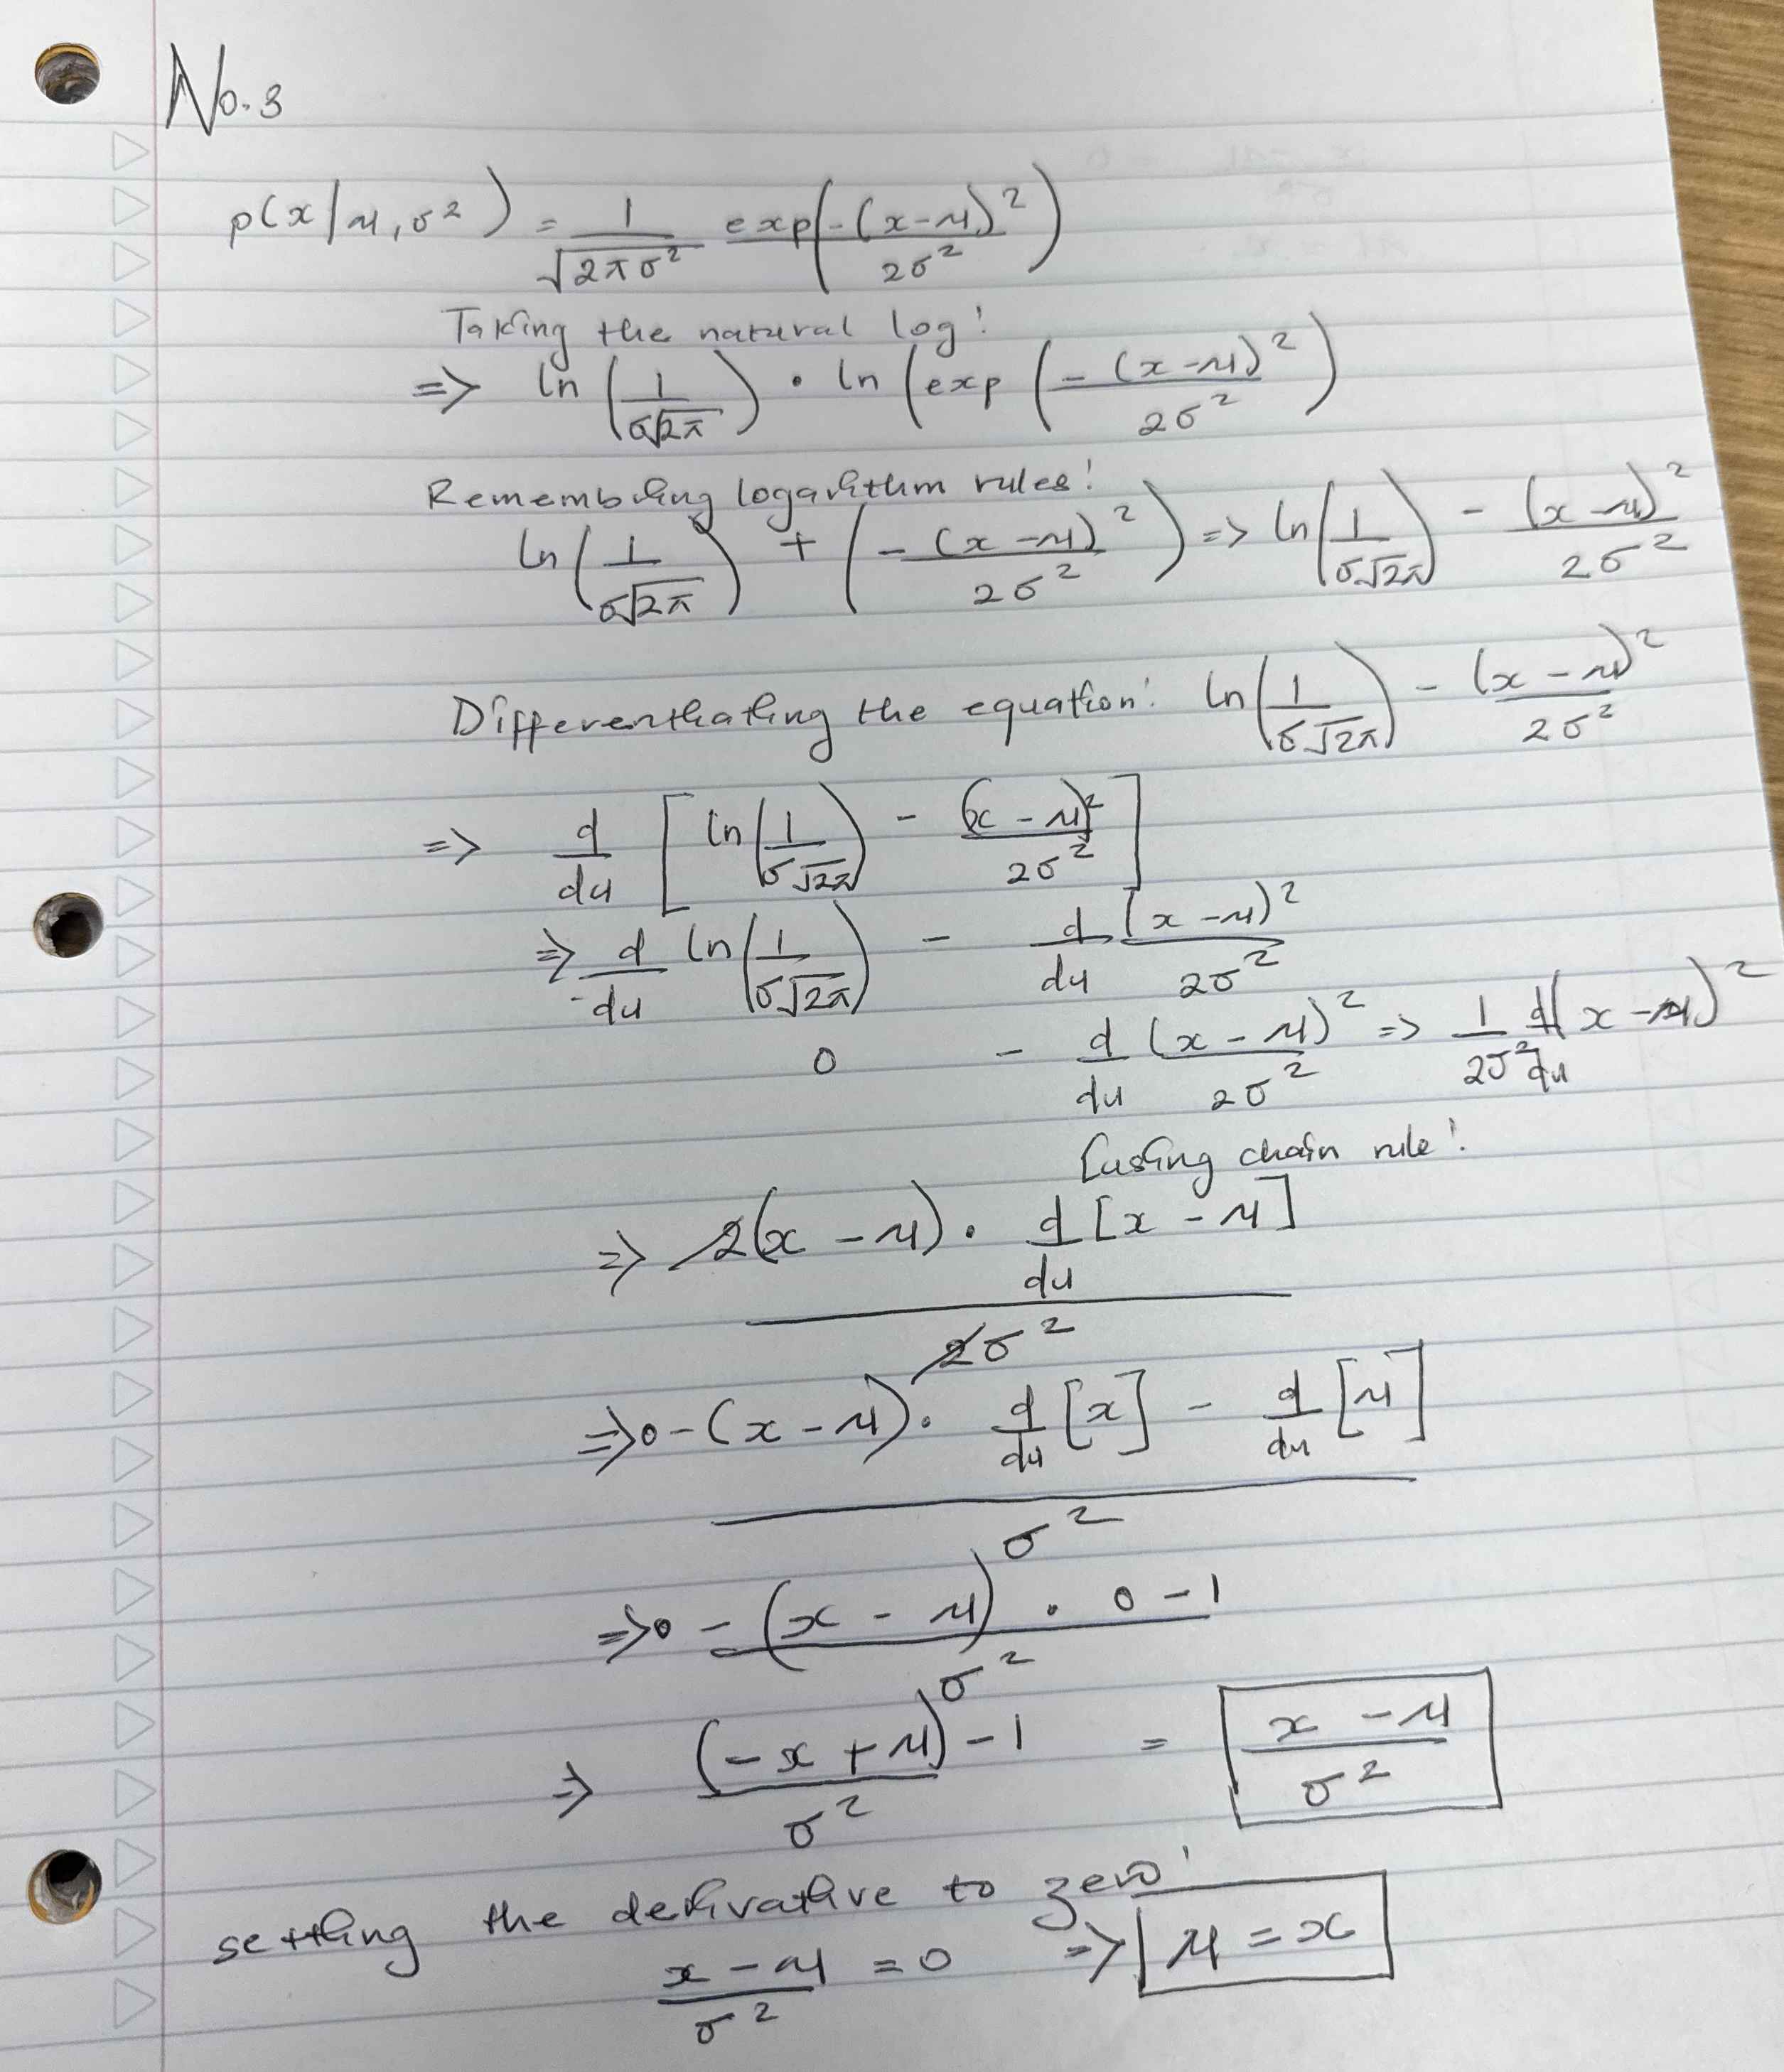 No. 3
p(x|μ, σ²) = 1/√(2πσ²) exp(-(x-μ)²/2σ²)
Taking the natural log:
=> ln(1/σ√2π) · ln(exp(-(x-μ)²/2σ²)
Remembring logarithm rules:
ln(1/σ√2π) + (-(x-μ)²/2σ²) => ln(1/σ√2π) - (x-μ)²/2σ²
Differenthating the equation: ln(1/σ√2π) - (x-μ)²/2σ²
=> d/du [ln(1/σ√2π) - (x-μ)²/2σ²]
=> d/du ln(1/σ√2π) - d/du (x-μ)²/2σ²
0 - d/du (x-μ)²/2σ² => 1/2σ² d/du(x-μ)²
[using chain rule:
=> 2(x-μ) · d/du [x-μ] / 2σ²
=> 0-(x-μ) · d/du [x] - d/du [μ] / σ²
=> 0 - (x-μ) · 0-1 / σ²
=> (-x+μ)-1 / σ² = x-μ / σ²
setting the derivative to zero:
x-μ / σ² = 0 => μ = x